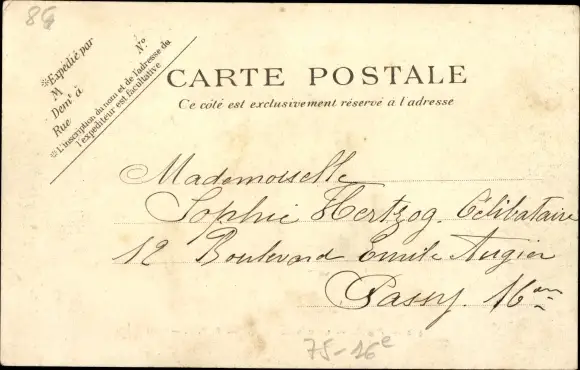 86
*Expédié par
M
Dem.t à
Rue
N.o
*L'inscription du nom et de l'adresse du
l'expéditeur est facultative
CARTE POSTALE
Ce côté est exclusivement réservé à l'adresse
Mademoiselle
Sophie Hertzog. Célibataire
12 Boulevard Emile Augier
Passy. 16em
75-16e